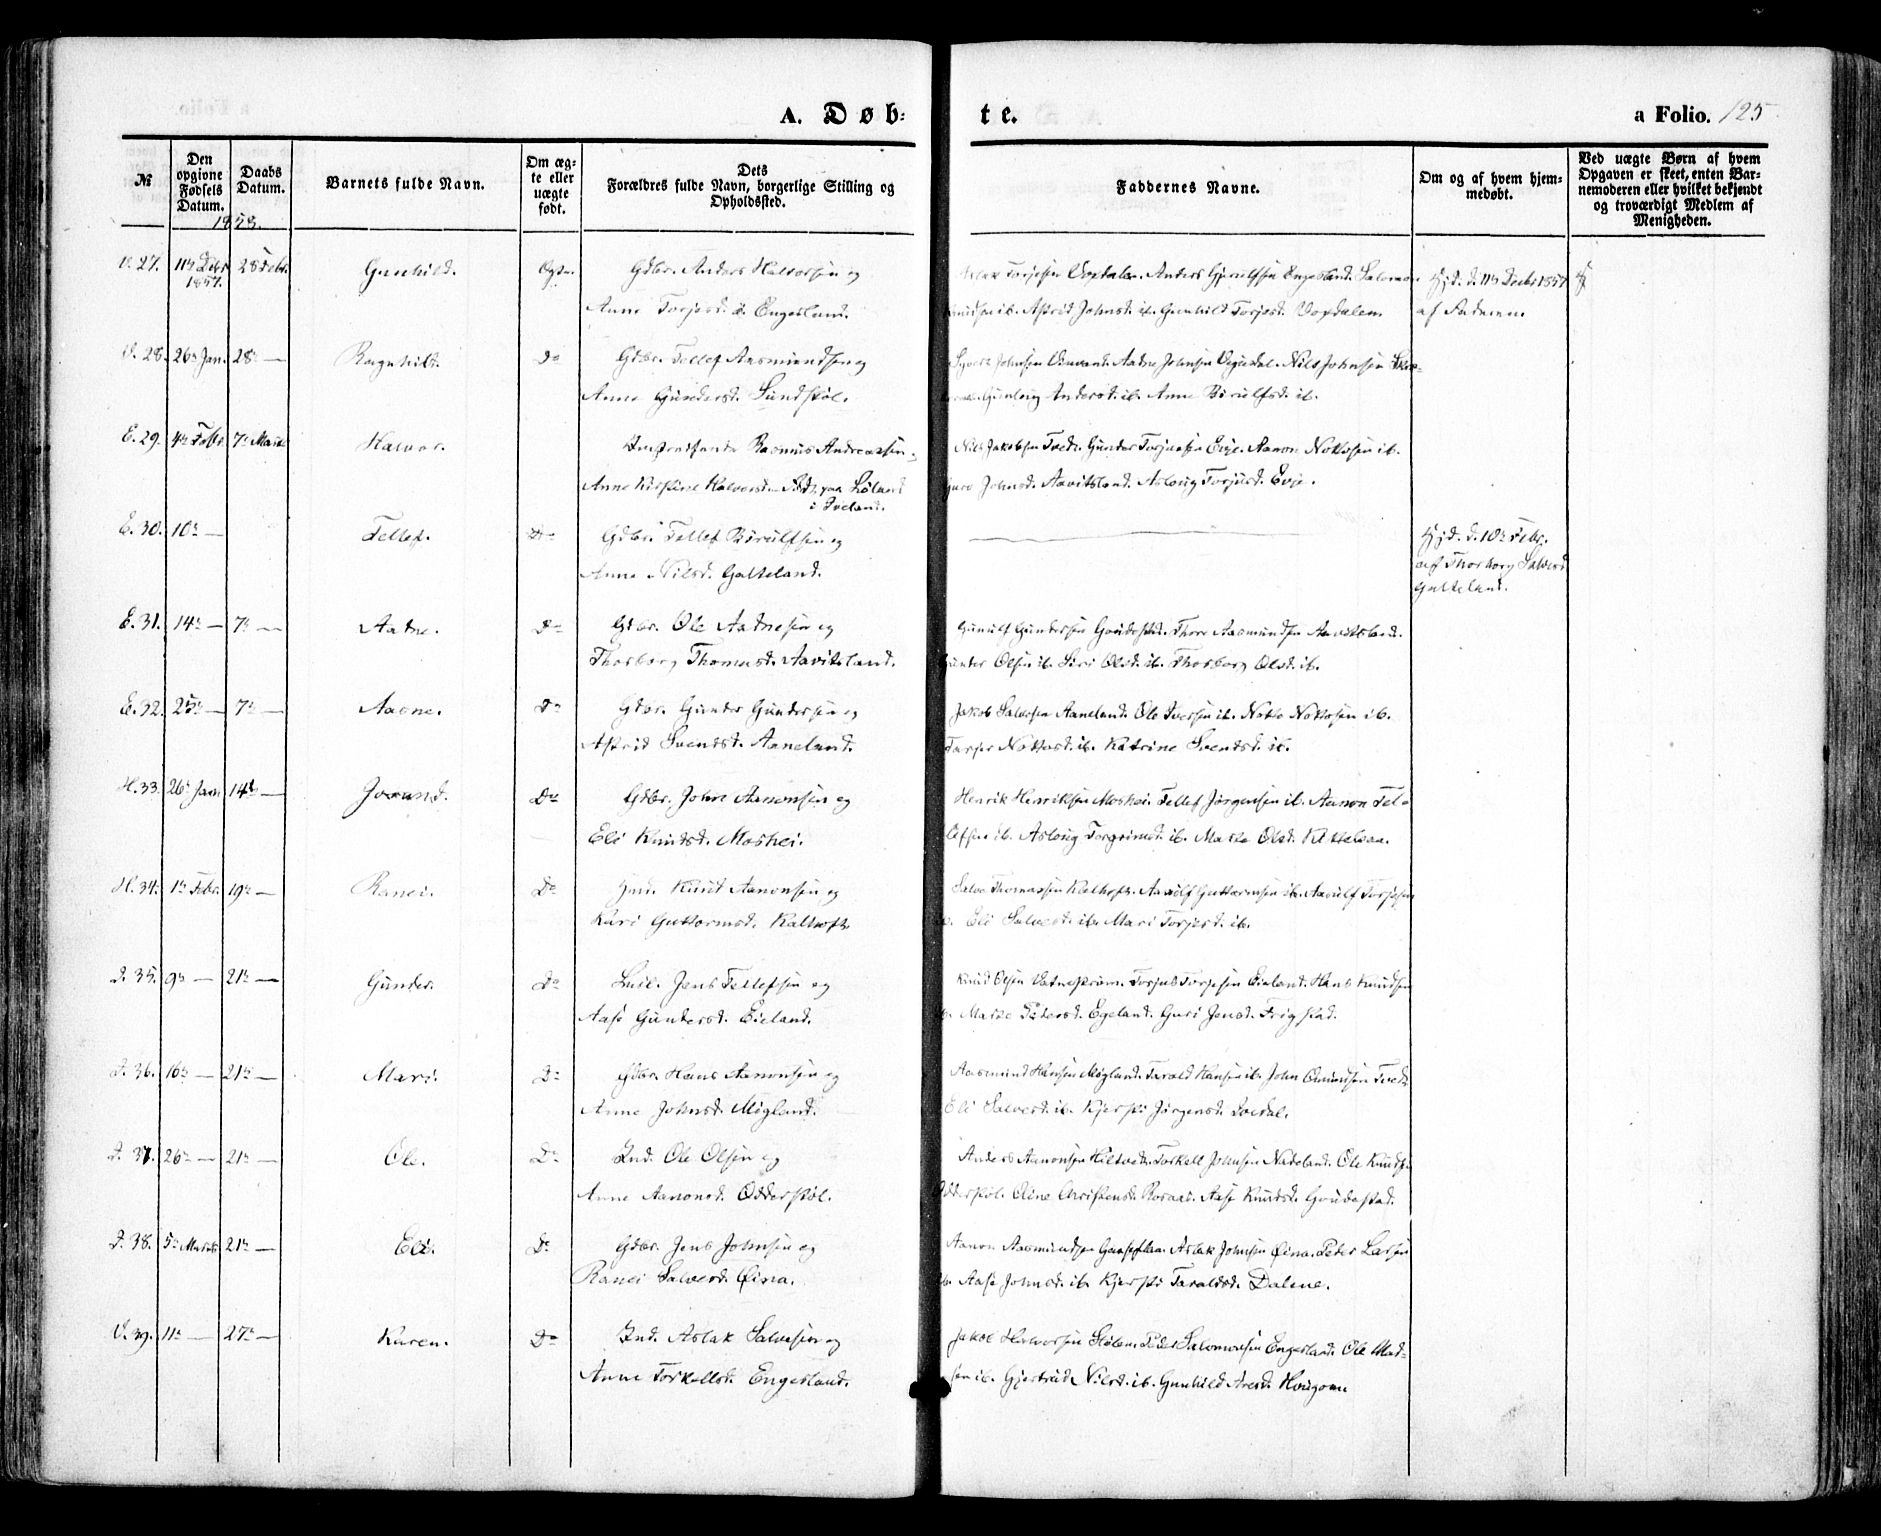 A. Døb-
te.
a Folio. 125
№
Den opgivne Fødsels Datum.
Daabs Datum.
Barnets fulde Navn.
Om ægte eller uægte født.
Dets Forældres fulde Navn, borgerlige Stilling og Opholdssted.
Faddernes Navne.
Om og af hvem hjemmedøbt.
Ved uægte Børn af hvem Opgaven er skeet, enten Barnemoderen eller hvilket bekjendt og troværdigt Medlem af Menigheden.
1858.
V. 27. 11te Decbr 1857. 28 Febr. Gunhild. Egte. Gdbr. Anders Halvorsen og
Anne Torjesd. Engesland.
Torjesen Vopdalen. Anders Engesland. Salomon
ib. Astrid Johnsd. ib. Gunhild Torjesd. Vopdalen
Hjd. d. 11te Decbr 1857
af Faderen
V. 28. 26de Jan. 28de — Ragnhild. Do Gdbr. Tellef Aasmundsen og
Anne Gundersd. Sundstøl.
Johnsen Aadne Johnsen Nils Johnsen
Gunlaug Andersd. ib. Anne Brynulfsd. ib.
E. 29. 4de Febr. 7de Marts Halvor. Rasmus Andreassen
Anne Kirstine Halvorsd. paa Løland
i Iveland.
Nils Jakobsen Tveit. Gunder Torjussen Evje. Aanon Nottosen ib.
Guro Johnsd. Aavitsland. Aslaug Torjusd. Evje.
E. 30. 10de — Tellef. Do Gdbr. Tellef Brynulfsen og
Anne Nilsd. Galteland.
Hjd. d. 10de Febr.
af Thorborg Salvesd.
Galteland.
E. 31. 14de — 7de — Aadne. Do Gdbr. Ole Aadnesen og
Thorborg Thomasd. Aavitsland.
Gundersen Thore Aasmundsen Aavitsland.
Gunder Olsen ib. Siri Olsd. ib. Thorborg Olsd. ib.
E. 32. 25de — 7de — Aagne. Do Gdbr. Gunder Gundersen og
Astrid Svendsd. Aaneland.
Jakob Salvesen Aaneland. Ole Iversen ib. Notto Nottosen ib.
Nottosd. ib. Katrine Svendsd. ib.
H. 33. 26de Jan 14de — Jorand. Do Gdbr. John Aanonsen og
Eli Knudsd. Moskei.
Henrik Henriksen Moskei. Tellef Jørgensen ib. Aanon Tel-
lefsen ib. Aslaug Torgrimsd. ib. Marte Olsd.
H. 34. 1ste Febr. 19de — Ranei. Do Ind. Knud Aanonsen og
Kari Guttormsd. Kalhoft.
Salve Thomassen Kalhoft. Aavulf Guttormsen ib. Aavulf Torjesen
ib. Eli Salvesd. ib. Mari Torjesd. ib.
I. 35. 9de — 21de — Gunder. Do Jens Tellefsen og
Aase Gundersd. Eieland.
Knud Olsen Vatnestrøm. Torjus Torjesen Eieland. Hans Knudsen
ib. Marte Pedersd. Egeland. Guri Jensd. Frigstad.
I. 36. 16de — 21de — Mari. Do Gdbr. Hans Aanonsen og
Anne Johnsd. Møgland.
Aasmund Hansen Møgland. Tarald Hansen ib. John
Eli Salvesd. ib. Kjersti Jørgensd.
I. 37. 26de — 21de — Ole. Do Ind. Ole Olsen og
Anne Aanonsd. Odderstøl.
Anders Aanonsen Torkell Johnsen Nateland. Ole Knuds.
Odderstøl. Christensd. Rosaas. Aase Knudsd.
I. 38. 5te Marts 21de — Eli. Do Gdbr. Jens Johnsen og
Ranei Salvesd. Øina.
Aanon Aasmundsen Aslak Johnsen Øina. Peder Larsen
ib. Aase Johnsd. ib. Kjersti Taraldsd. Dalene.
V. 39. 11te — 27de — Karen. Do Ind. Aslak Salvesen og
Anne Torkellsd. Engesland.
Jakob Halvorsen Peder Salomonsen Engesland. Ole Mad-
sen ib. Gjertrud Nilsd. ib. Gunhild